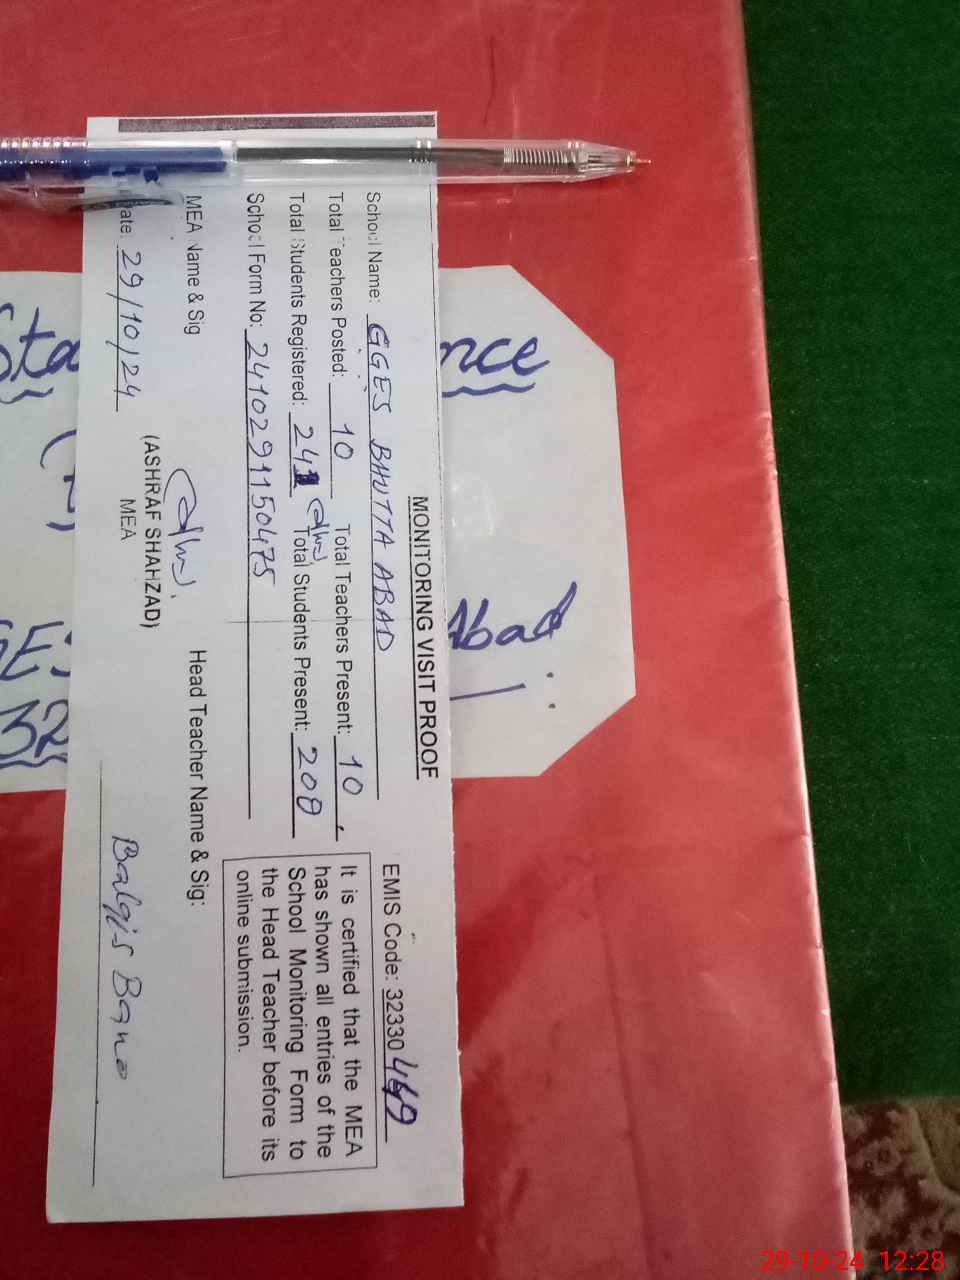 MONITORING VISIT PROOF
School Name: GGES BHUTTA ABAD
EMIS Code: 32330469
Total Teachers Posted: 10 Total Teachers Present: 10
Total Students Registered: 241 Total Students Present: 208
School Form No: 2410291150475
It is certified that the MEA
has shown all entries of the
School Monitoring Form to
the Head Teacher before its
online submission.
MEA Name & Sig
Head Teacher Name & Sig:
(ASHRAF SHAHZAD)
MEA
Date: 29/10/24
Balqis Bano
Sta
nce
Abad
32
29-10-24 12:28